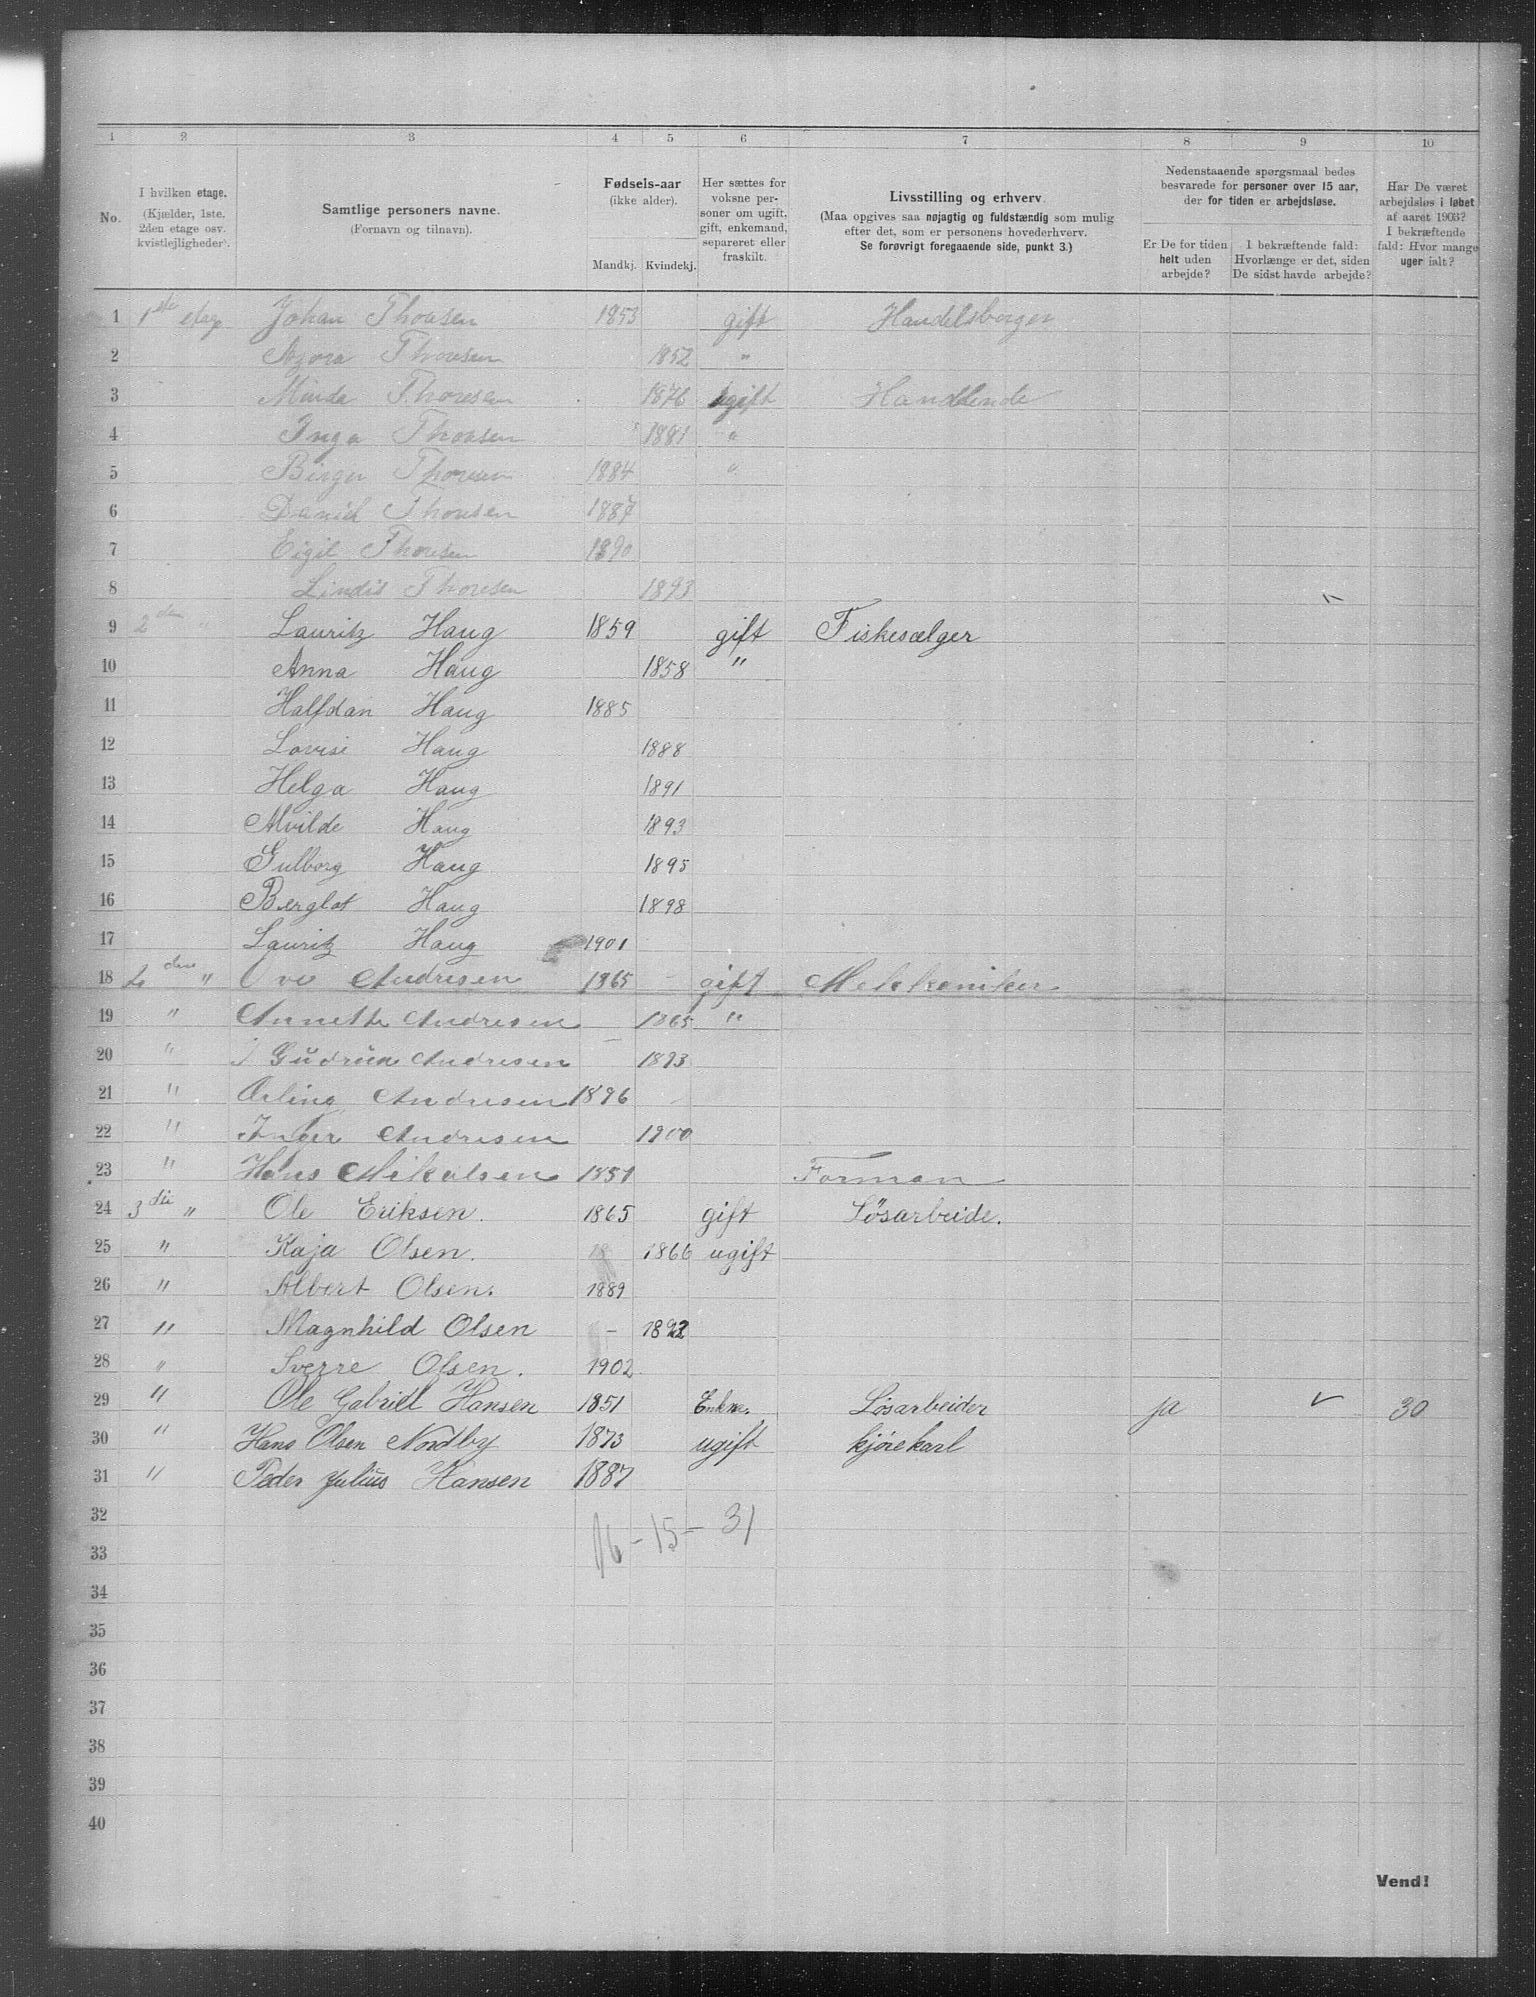 1 2 3 4 5 6 7 8 9 10
No.
I hvilken etage.
(Kjælder, 1ste.
2den etage osv.
kvistlejligheder).
Samtlige personers navne.
(Fornavn og tilnavn).
Fødsels-aar
(ikke alder).
Mandkj. Kvindekj.
Her sættes for
voksne per-
soner om ugift,
gift, enkemand,
separeret eller
fraskilt.
Livsstilling og erhverv.
(Maa opgives saa nøjagtig og fuldstændig som mulig
efter det, som er personens hovederhverv.
Se forøvrigt foregaaende side, punkt 3.)
Nedenstaaende spørgsmaal bedes
besvarede for personer over 15 aar,
der for tiden er arbejdsløse.
Er De for tiden
helt uden
arbejde?
I bekræftende fald:
Hvorlænge er det, siden
De sidst havde arbejde?
Har De været
arbejdsløs i løbet
af aaret 1903?
I bekræftende
fald: Hvor mange
uger ialt?
1 1ste etage Johan Thoresen 1853 gift Handelsborger
2 Thoresen 1852 "
3 Minda Thoresen 1876 ugift Handlende
4 Inga Thoresen 1881 "
5 Birger Thoresen 1884 "
6 Daniel Thoresen 1887
7 Eigil Thoresen 1890
8 Lindis Thoresen 1893
9 2den " Lauritz Haug 1859 gift Fiskesælger
10 Anna Haug 1858 "
11 Halfdan Haug 1885
12 Lovise Haug 1888
13 Helga Haug 1891
14 Mvilde Haug 1893
15 Gulborg Haug 1895
16 Berglot Haug 1898
17 Lauritz Haug 1901
18 2den " Ove Andresen 1865 - gift Mekkeniker
19 " Annette Andresen 1865 "
20 " Gudrun Andresen 1893
21 " Erling Andresen 1896
22 " Inger Andresen 1900
23 " Hans Mikalsen 1851 Forman
24 3die " Ole Eriksen. 1865 gift Løsarbeide.
25 " Kaja Olsen. 1866 ugift
26 " Albert Olsen. 1889
27 " Magnhild Olsen - 1892
28 " Sverre Olsen. 1902
29 " Ole Gabriel Hansen 1851 Enkm. Løsarbeider ja 30
30 " Hans Olsen Nordby 1873 ugift kjørekarl
31 " Peder Julius Hansen 1887
32
16 - 15 - 31
33
34
35
36
37
38
39
40
Vend!